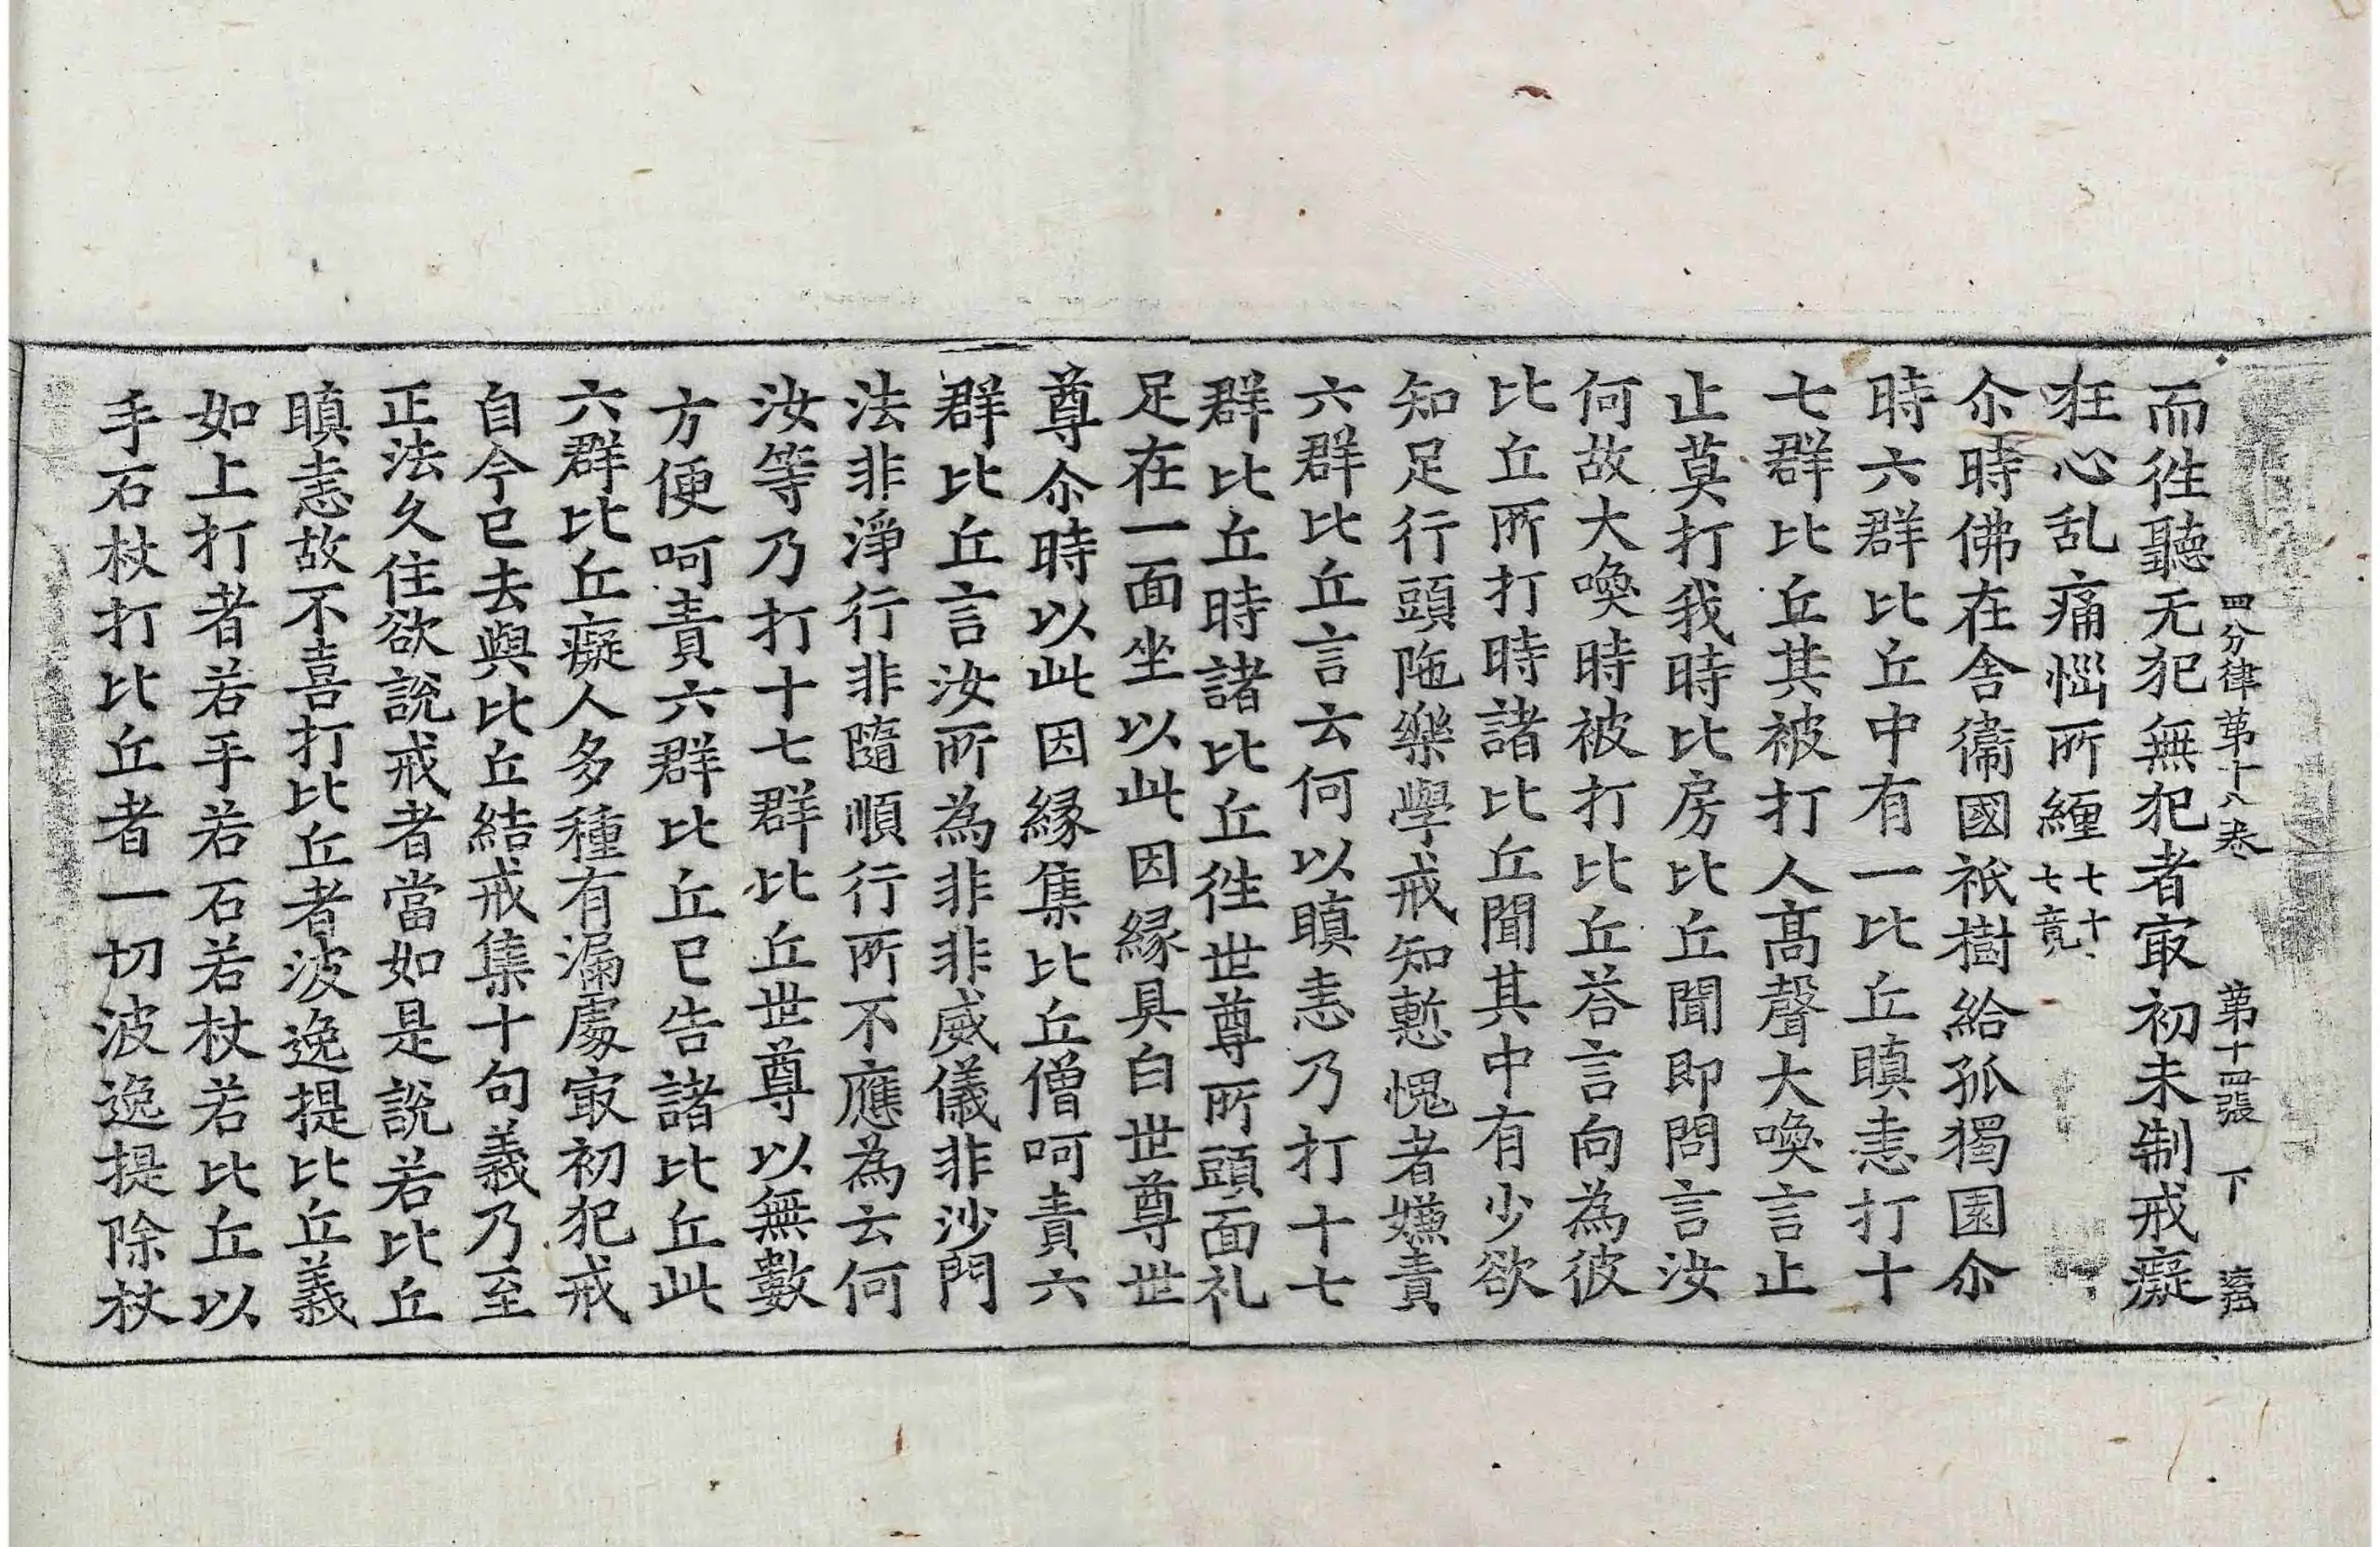 四分律第十八卷 第十四張 下
而徃聽无犯無犯者㝡初未制戒癡
狂心乱痛惱所纏七十七竟
尒時佛在舍衞國祇樹給孤獨園尒
時六群比丘中有一比丘瞋恚打十
七群比丘其被打人髙聲大喚言止
止莫打我時比房比丘聞即問言汝
何故大喚時被打比丘荅言向為彼
比丘所打時諸比丘聞其中有少欲
知足行頭陁樂學戒知慙愧者嫌責
六群比丘言云何以瞋恚乃打十七
群比丘時諸比丘徃世尊所頭面礼
足在一面坐以此因緣具白世尊世
尊尒時以此因緣集比丘僧呵責六
群比丘言汝所為非非威儀非沙門
法非淨行非隨順行所不應為云何
汝等乃打十七群比丘世尊以無數
方便呵責六群比丘已告諸比丘此
六群比丘癡人多種有漏處㝡初犯戒
自今已去與比丘結戒集十句義乃至
正法久住欲說戒者當如是說若比丘
瞋恚故不喜打比丘者波逸提比丘義
如上打者若手若石若杖若比丘以
手石杖打比丘者一切波逸提除杖